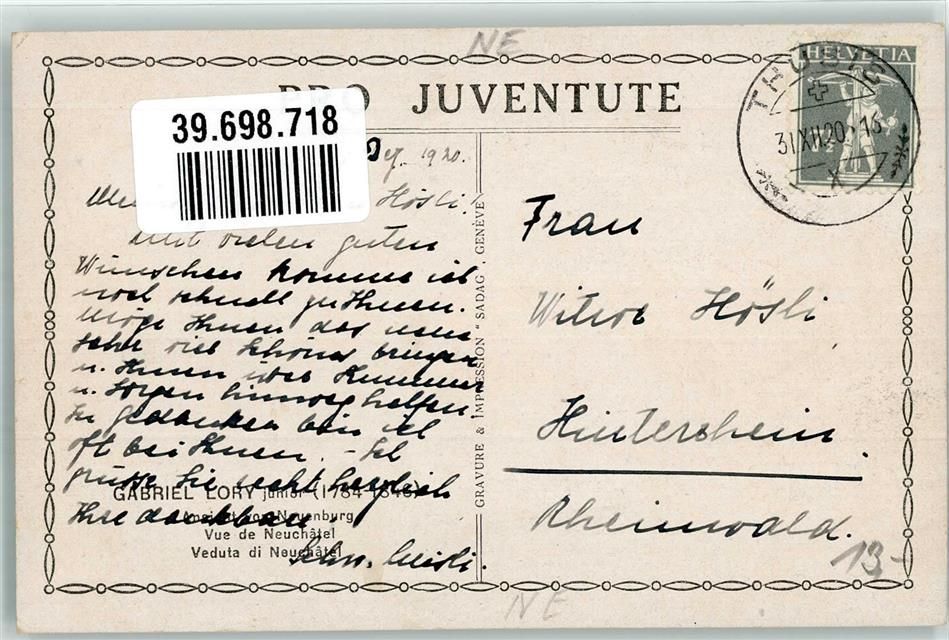 NE
PRO JUVENTUTE
39.698.718
HELVETIA
THUSIS
31.XII.20. 16
X
Dez. 1920.
Hösli.
Mit vielen guten
Wünschen komme ich
noch schnell zu Ihnen.
Möge Ihnen das neue
Jahr viel Schönes bringen
u. Ihnen über Kummer
u. Sorgen hinweg helfen.
In Gedanken bin ich
oft bei Ihnen. - Ich
grüsse Sie recht herzlich
Ihre dankbare
Schw.
GABRIEL LORY junior (1784-1846)
Ansicht von Neuenburg
Vue de Neuchâtel
Veduta di Neuchâtel
GRAVURE & IMPRESSION "SADAG", GENÈVE
Frau
Witwe Hösli
Hinterrhein
Rheinwald.
13,-
NE